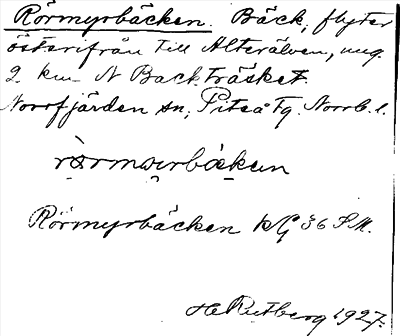 Rörmyrbäcken. Bäck, flyter
österifrån till Alterälven, ung.
2 km N Backträsket
Norrfjärden sn, Piteå tg. Norrb. l.
Rörmyrbäcken kG 36 S.M.
H. Rutberg 1927.